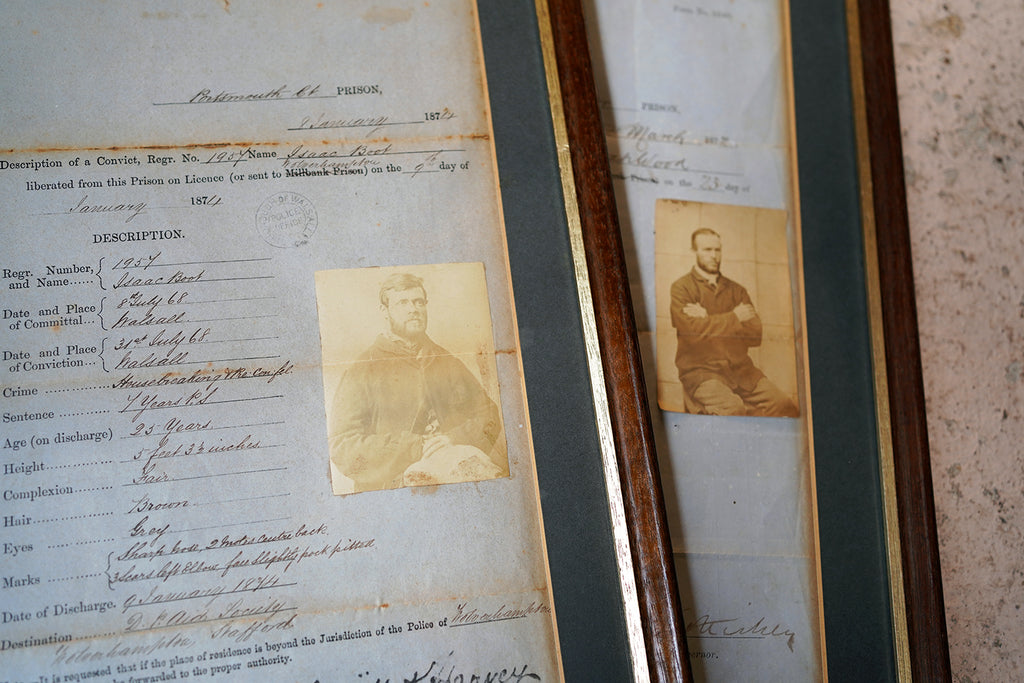 Portsmouth Ct PRISON,
9 January 1874
Description of a Convict, Regr. No. 1957 Name Isaac Boot
Wolverhampton
liberated from this Prison on Licence (or sent to Millbank Prison) on the 9th day of
January 1874
POLICE
DESCRIPTION.
Regr. Number, and Name...... { 1957
Isaac Boot
Date and Place of Committal... { 8th July 68
Walsall
Date and Place of Conviction.... { 31st July 68.
Walsall
Crime Housebreaking & Pre. Con. fel.
Sentence ............ 7 Years P.S
Age (on discharge) 25 Years
Height............... 5 feet 3½ inches
Complexion......... Fair
Hair.................. Brown
Eyes ............... Grey
Marks ............ { Sharp nose, 2 moles centre back
3 scars left Elbow face slightly pock pitted
Date of Discharge. 9 January 1874
Destination ......... D. P. Aid Society
Wolverhampton Stafford
It is requested that if the place of residence is beyond the Jurisdiction of the Police of Wolverhampton
be forwarded to the proper authority.
Harvey
Form No.
PRISON,
March 187
Wood
Prison on the 23 day of
ernor.